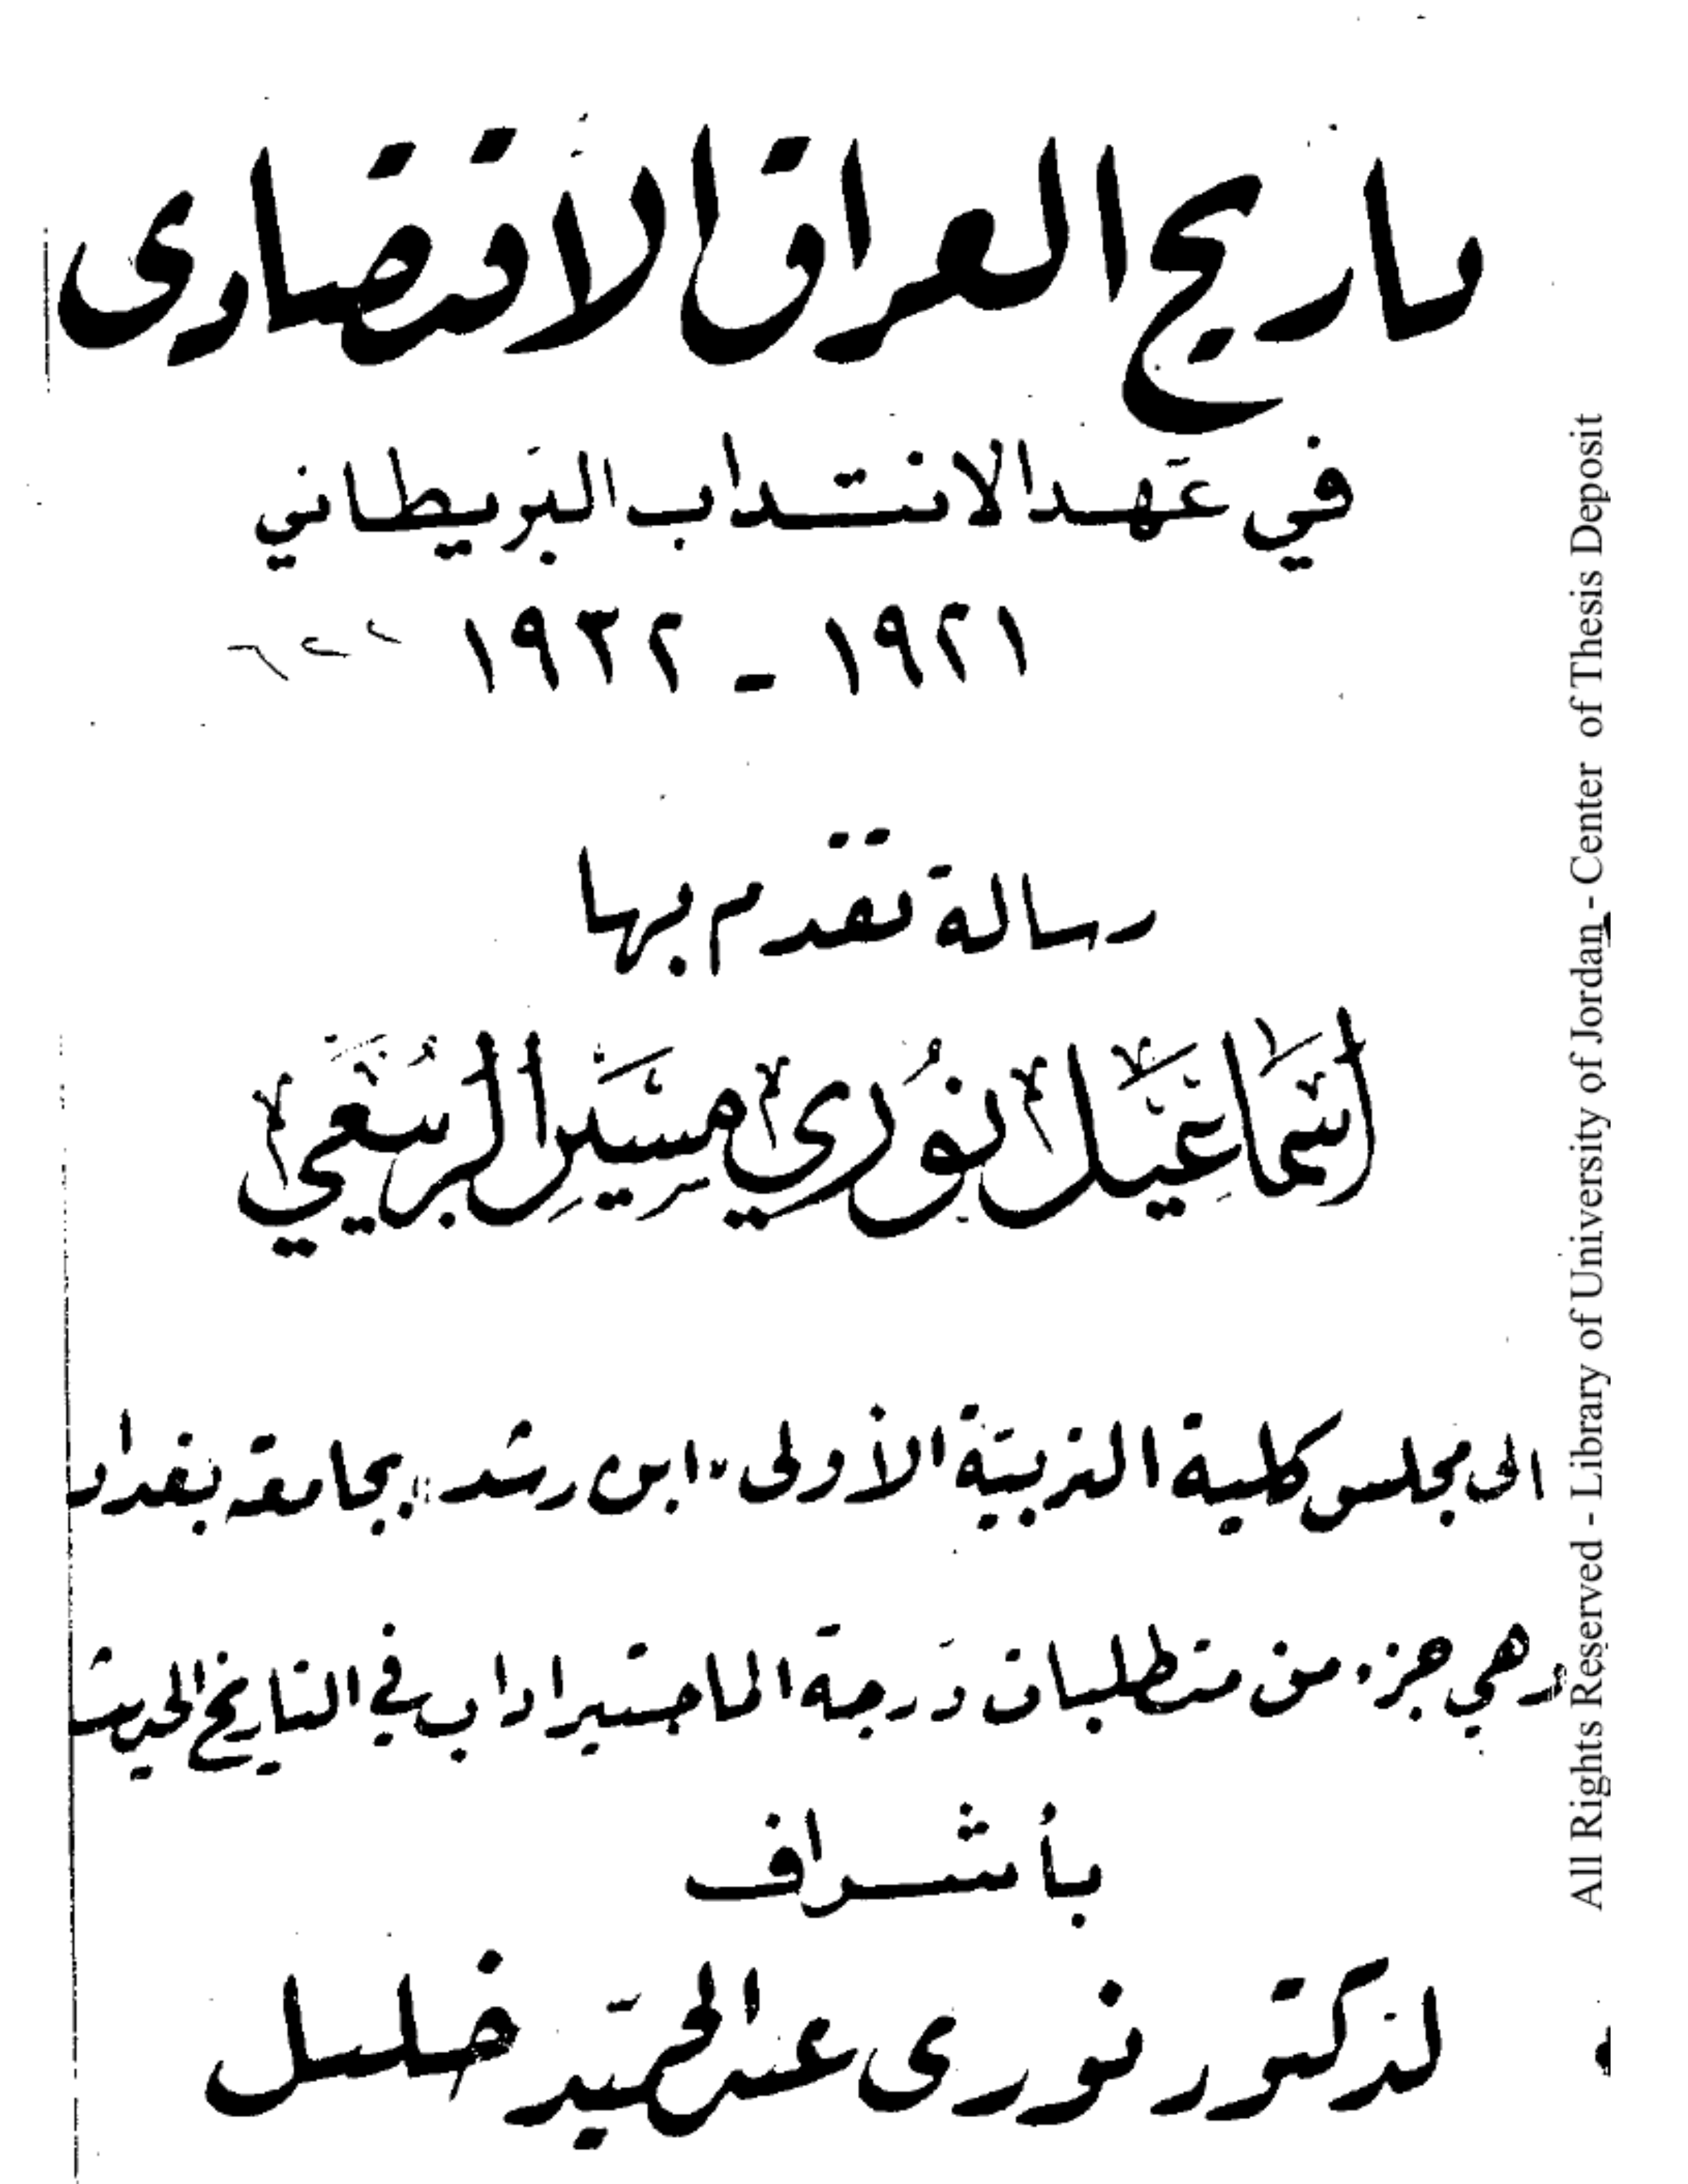 تاريخ العراق الاقتصادي
في عهد الانتداب البريطاني
١٩٢١ - ١٩٣٢
رسالة تقدم بها
اسماعيل نوري مسير الربيعي
الى مجلس كلية التربية الأولى «ابن رشد» بجامعة بغداد
وهي جزء من متطلبات درجة الماجستير اداب في التاريخ الحديث
بأشراف
الدكتور نوري عبد الحميد خليل
All Rights Reserved - Library of University of Jordan - Center of Thesis Deposit